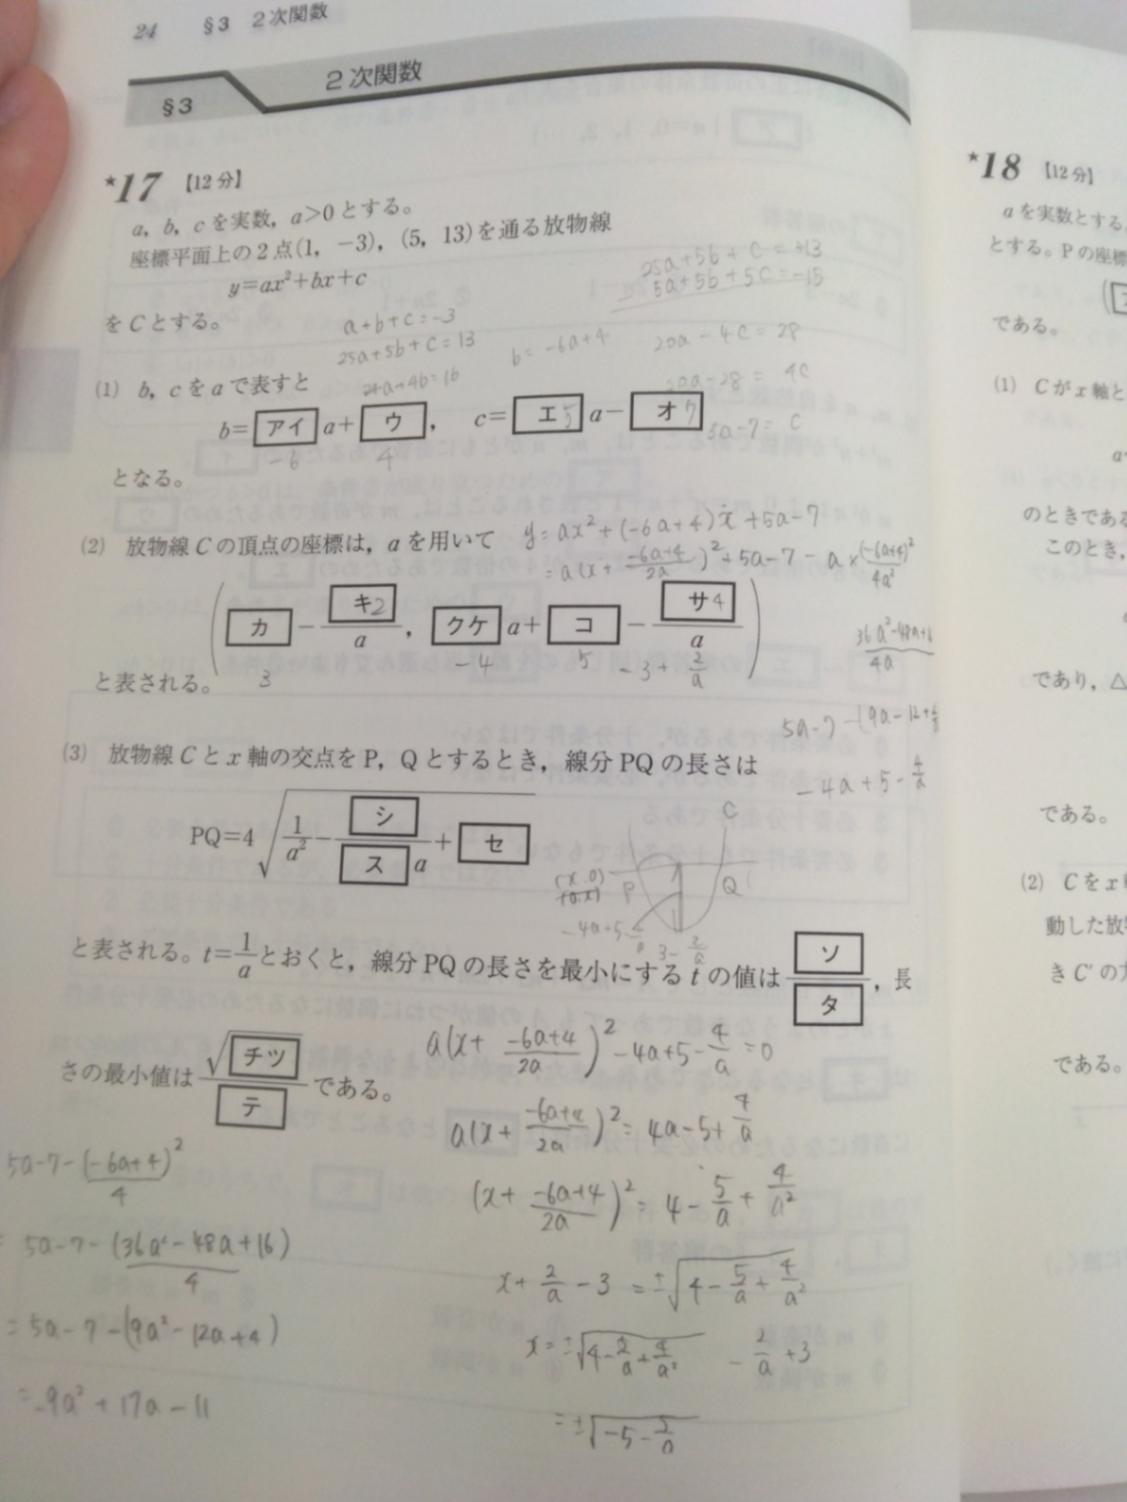 24 §3 2次関数
§3 2次関数
*17 【12分】
a, b, cを実数, a>0とする。
座標平面上の2点(1, -3), (5, 13)を通る放物線
y=ax²+bx+c
をCとする。
a+b+c=-3
25a+5b+c=13
24a+4b=16
b=-6a+4
25a+5b+c=+13
5a+5b+5c=-15
20a-4c=28
20a-28=4c
5a-7=c
(1) b, cをaで表すと
b=アイa+ウ, c=エ5a-オ7
-6 4
となる。
(2) 放物線Cの頂点の座標は, aを用いて
y=ax²+(-6a+4)x+5a-7
=a(x+(-6a+4)/2a)²+5a-7-a×(-6a+4)²/4a²
(カ-キ2/a, クケa+コ-サ4/a)
3 -4 5 -3+2/a
と表される。
5a-7-(9a-12+
-4a+5-4/a
(3) 放物線Cとx軸の交点をP, Qとするとき, 線分PQの長さは
PQ=4√(1/a²-シ/スa+セ)
C
P Q
-4a+5-4/a
3-2/a
と表される。t=1/aとおくと, 線分PQの長さを最小にするtの値はソ/タ, 長
さの最小値は√チツ/テである。
a(x+(-6a+4)/2a)²-4a+5-4/a=0
a(x+(-6a+4)/2a)²=4a-5+4/a
(x+(-6a+4)/2a)²=4-5/a+4/a²
x+2/a-3=±√(4-5/a+4/a²)
-2/a+3
=±√(-5-2/a
5a-7-(-6a+4)²/4
=5a-7-(36a²-48a+16)/4
=5a-7-(9a²-12a+4)
=-9a²+17a-11
*18 【12分】
aを実数とする。
とする。Pの座標
である。
(1) Cがx軸と
のときである
このとき,
であり, △
である。
(2) Cをx
動した放物
きC'の
である。